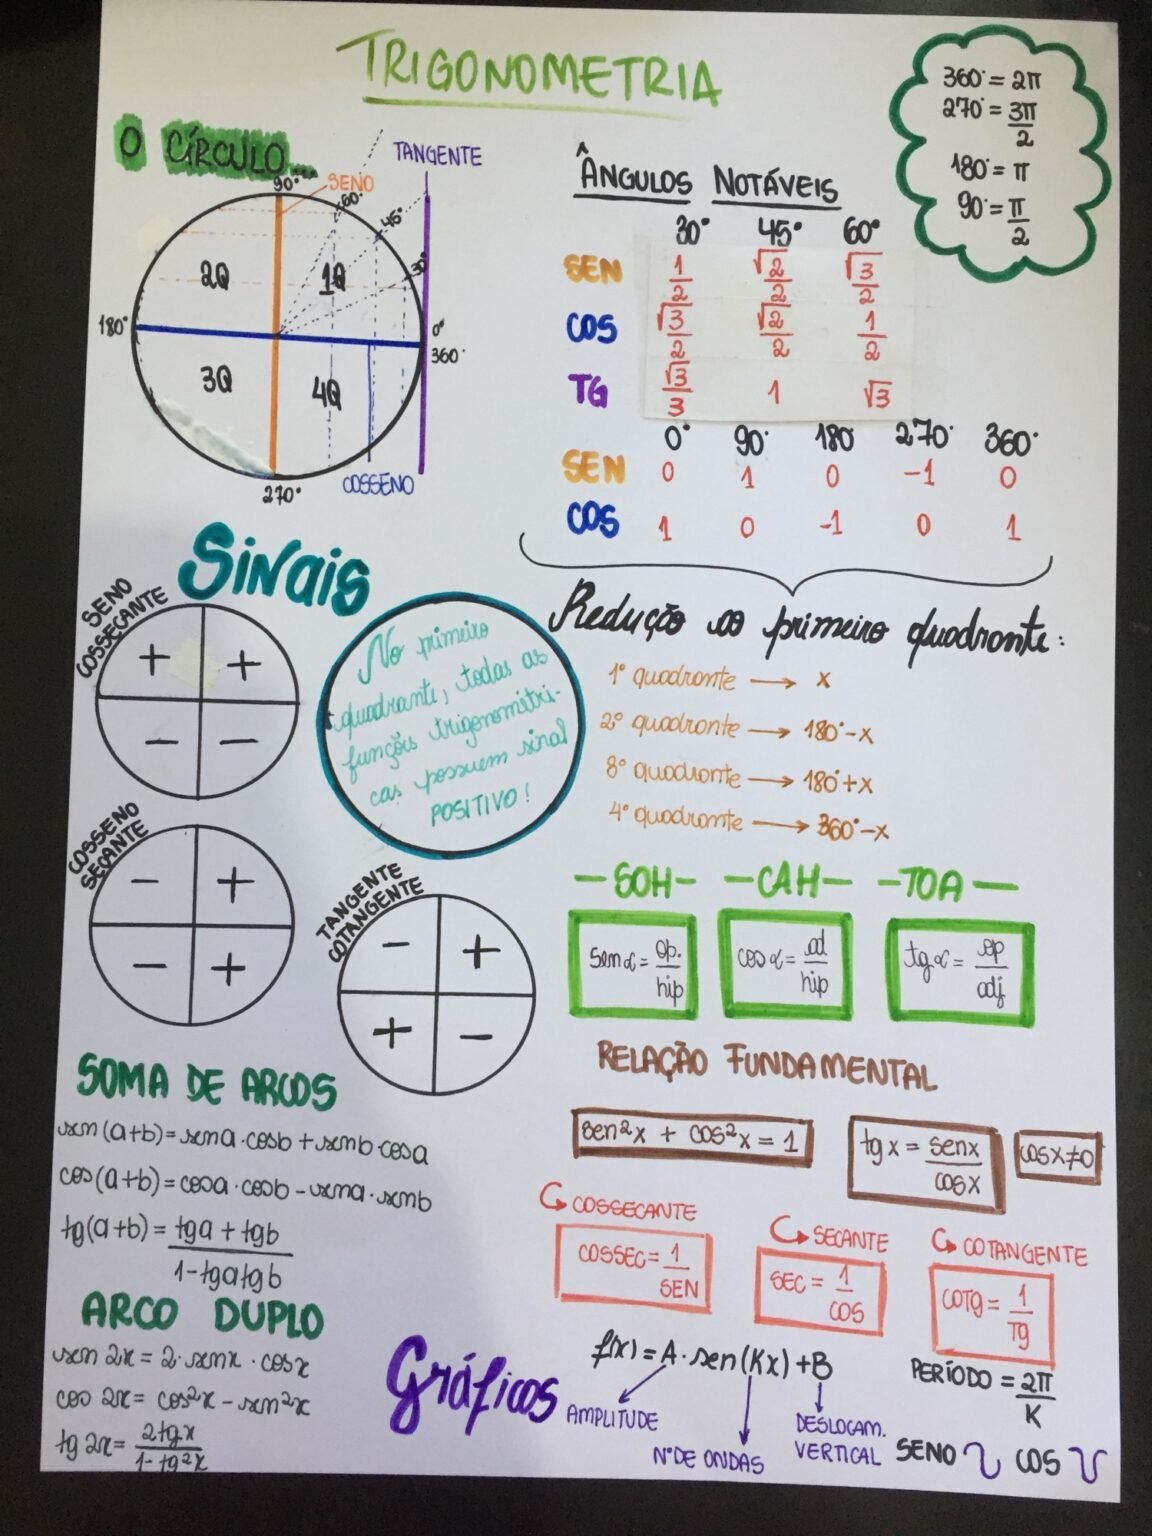 TRIGONOMETRIA
360° = 2π
270° = 3π/2
180° = π
90° = π/2
O CÍRCULO...
TANGENTE
SENO
90°
60°
45°
30°
2Q
1Q
180°
0°
360°
3Q
4Q
270°
COSSENO
ÂNGULOS NOTÁVEIS
30° 45° 60°
SEN 1/2 √2/2 √3/2
COS √3/2 √2/2 1/2
TG √3/3 1 √3
0° 90° 180° 270° 360°
SEN 0 1 0 -1 0
COS 1 0 -1 0 1
Sinais
SENO
COSSECANTE
+ +
- -
No primeiro
quadrante, todas as
funções trigonométri-
cas possuem sinal
POSITIVO!
COSSENO
SECANTE
- +
- +
TANGENTE
COTANGENTE
- +
+ -
Redução ao primeiro quadrante:
1° quadrante → x
2° quadrante → 180°-x
3° quadrante → 180°+x
4° quadrante → 360°-x
-SOH- -CAH- -TOA-
sen α = op./hip
cos α = ad/hip
tg α = op/adj
RELAÇÃO FUNDAMENTAL
sen²x + cos²x = 1
tg x = senx/cosx
cosx≠0
COSSECANTE
COSSEC = 1/SEN
SECANTE
SEC = 1/COS
COTANGENTE
COTG = 1/TG
SOMA DE ARCOS
sen(a+b) = sena · cosb + senb · cosa
cos(a+b) = cosa · cosb - sena · senb
tg(a+b) = tga + tgb / 1-tgatgb
ARCO DUPLO
sen 2x = 2 · senx · cosx
cos 2x = cos²x - sen²x
tg 2x = 2tgx / 1-tg²x
Gráficos
f(x) = A · sen(Kx) + B
AMPLITUDE
N° DE ONDAS
DESLOCAM.
VERTICAL
PERÍODO = 2π/K
SENO COS